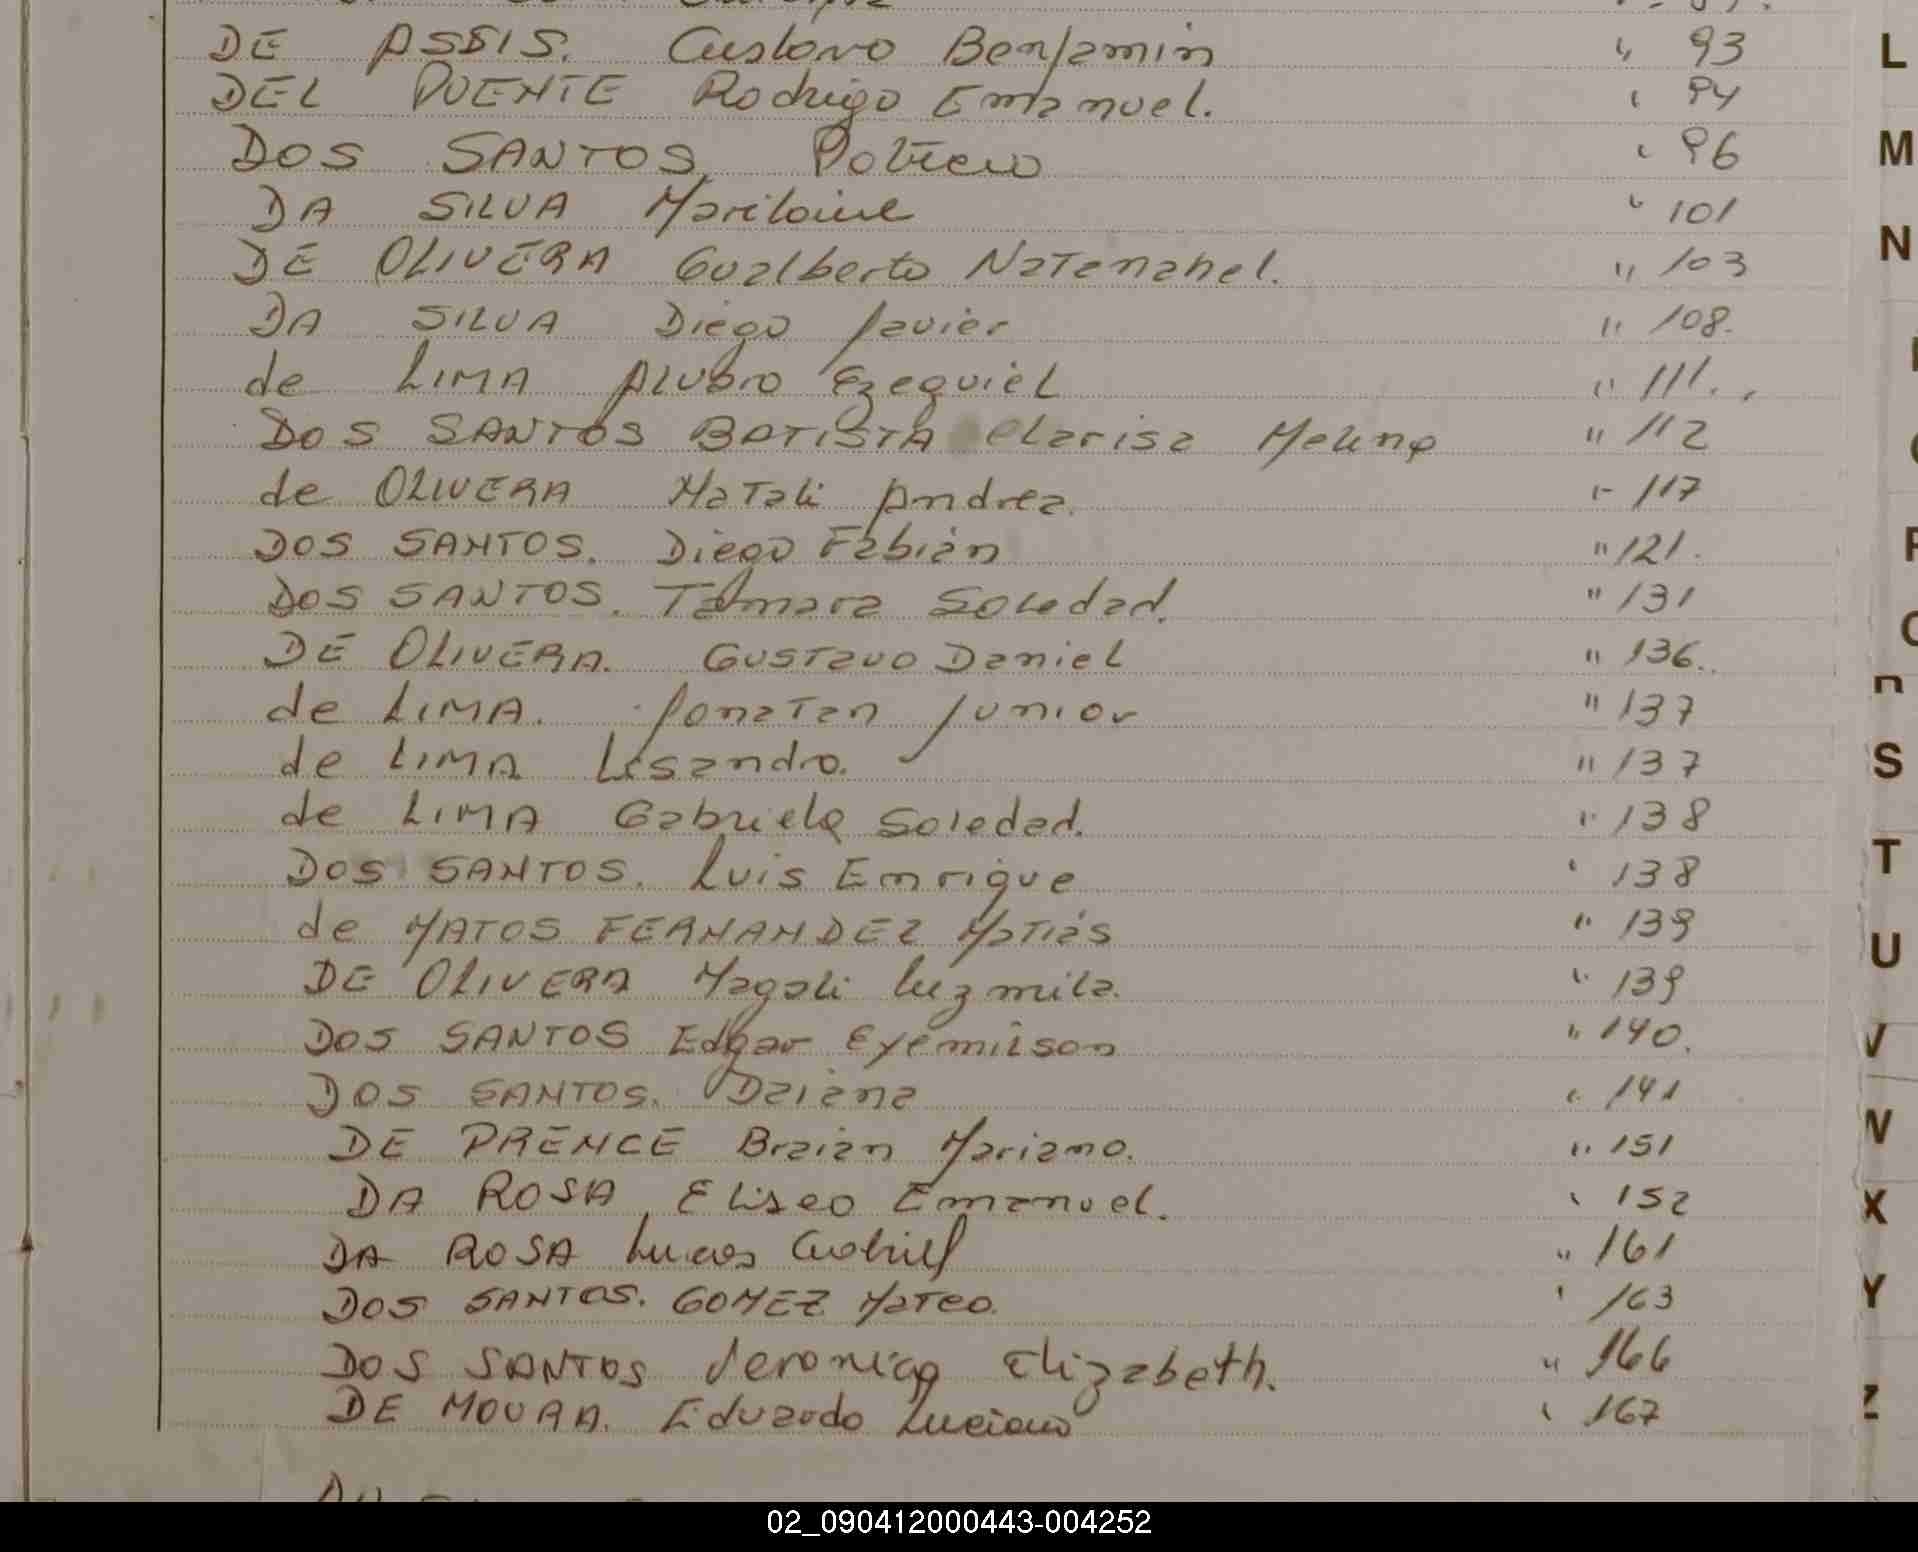 DE ASSIS. Gustavo Benjamin " 93
DEL PUENTE Rodrigo Emanuel. " 94
DOS SANTOS, Patricio " 96
DA SILVA Marilaine " 101
DE OLIVERA Gualberto Natanahel. " 103
DA SILVA Diego Javier " 108.
de LIMA Alvaro Ezequiel " 111.
DOS SANTOS BATISTA Clarisa Melina " 112
de OLIVERA Natali Andrea. " 117
DOS SANTOS. Diego Fabián " 121.
DOS SANTOS. Támara Soledad. " 131
DE OLIVERA. Gustavo Daniel " 136.
de LIMA. Jonatan Junior " 137
de LIMA Lisandro. " 137
de LIMA Gabriela Soledad. " 138
DOS SANTOS. Luis Enrique " 138
de MATOS FERNANDEZ Matiás " 139
DE OLIVERA Magali Luzmila. " 139
DOS SANTOS Edgar Eyemilson " 140.
DOS SANTOS. Daiana " 141
DE PRENCE Braian Mariano. " 151
DA ROSA, Eliseo Emanuel. " 152
DA ROSA Lucas Gabriel " 161
DOS SANTOS. GOMEZ Mateo. " 163
DOS SANTOS Veronica Elizabeth. " 166
DE MOURA. Eduardo Luciano " 167
L
M
N
S
T
U
V
W
X
Y
Z
02_090412000443-004252